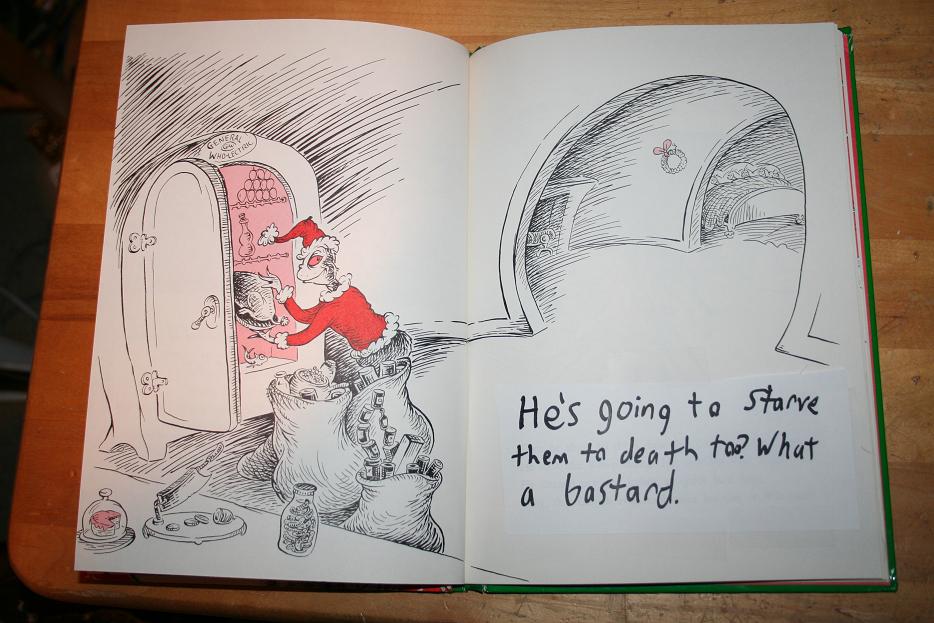 GENERAL
GW
WHO-LECTRIC
He's going to starve
them to death too? What
a bastard.